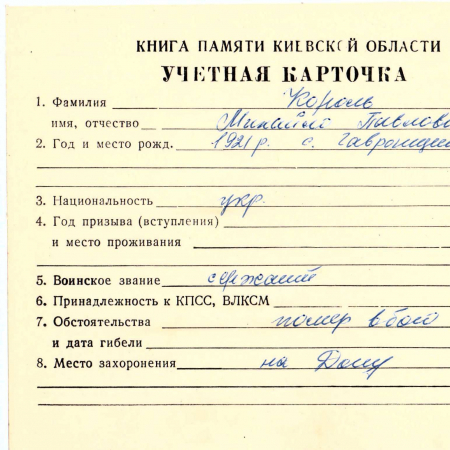 КНИГА ПАМЯТИ КИЕВСКОЙ ОБЛАСТИ
УЧЕТНАЯ КАРТОЧКА
1. Фамилия Король
имя, отчество Михайло Павлови
2. Год и место рожд. 1921 р. с.
3. Национальность укр.
4. Год призыва (вступления)
и место проживания
5. Воинское звание сержант
6. Принадлежность к КПСС, ВЛКСМ
7. Обстоятельства помер в бою
и дата гибели
8. Место захоронения на Дону